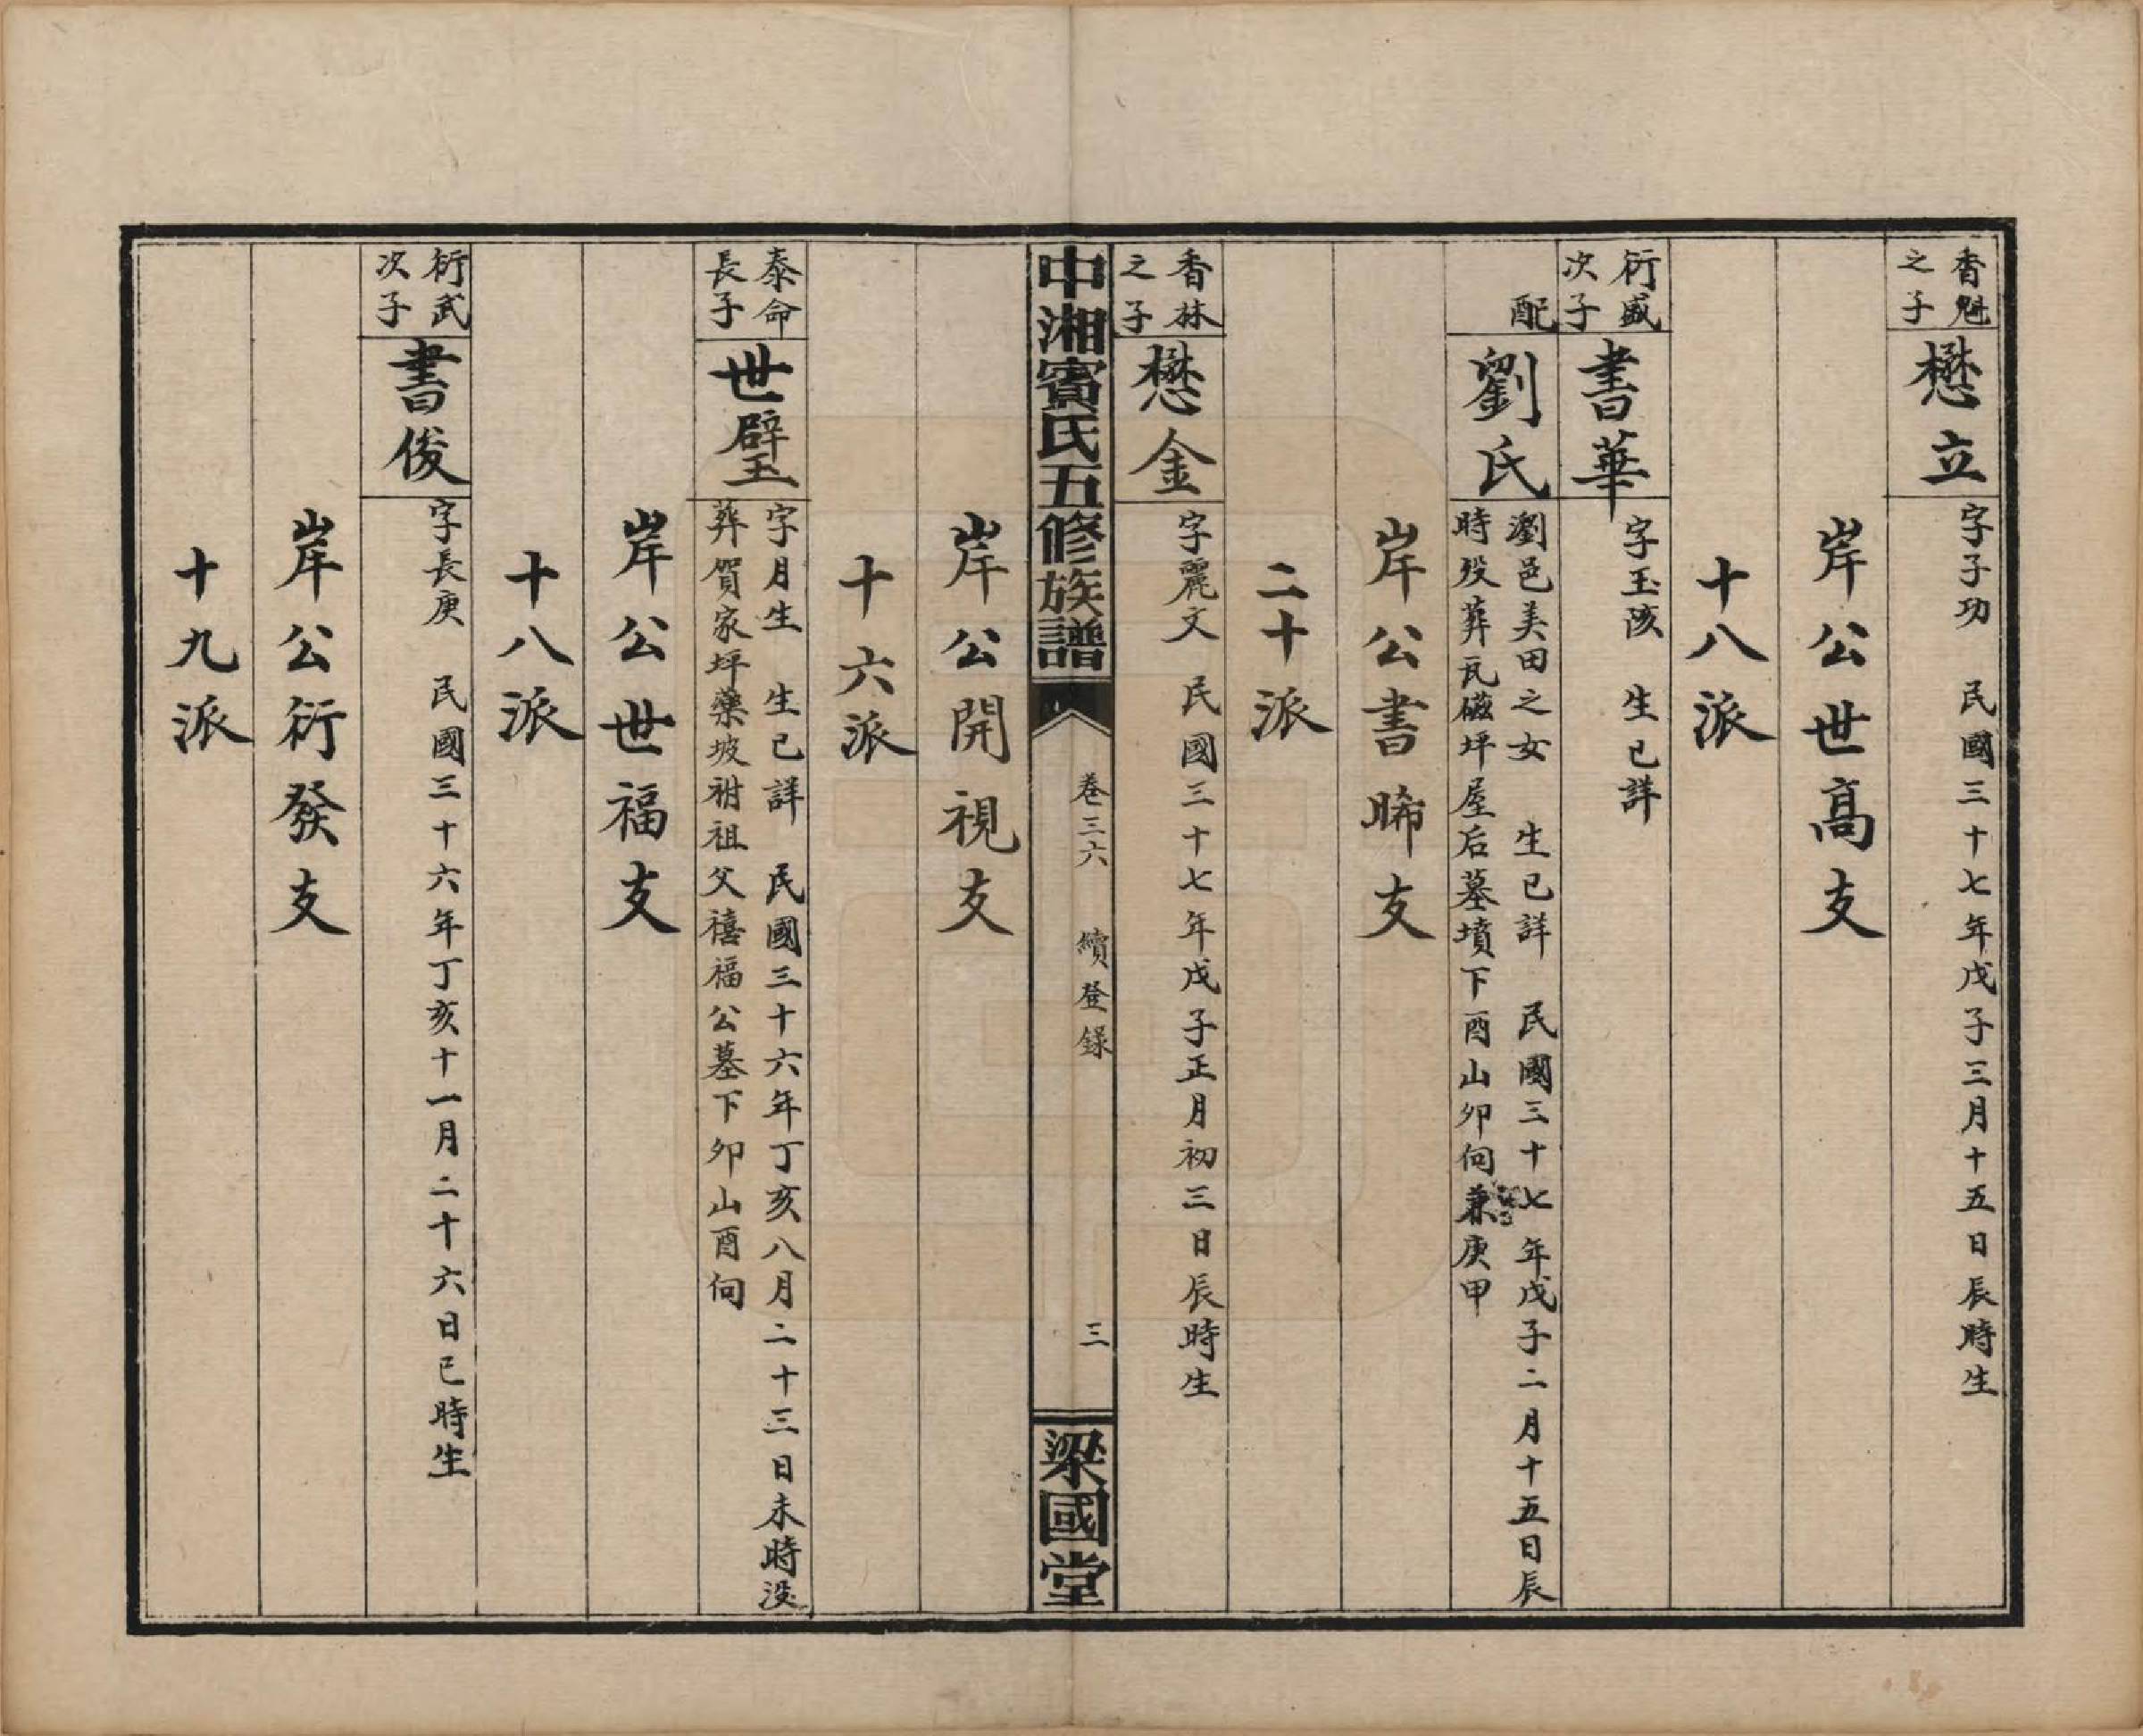 香魁
之子
懋立
字子功　民國三十七年戊子三月十五日辰時生
岸公世高支
十八派
衍盛
次子
書華
字玉陔　生已詳
配
劉氏
瀏邑美田之女　生已詳　民國三十七年戊子二月十五日辰
時歿葬瓦磁坪屋后墓墳下酉山卯向兼庚甲
岸公書晞支
二十派
香林
之子
懋金
字麗文　民國三十七年戊子正月初三日辰時生
中湘賓氏五修族譜
卷三六　續登錄　三
梁國堂
岸公開視支
十六派
泰命
長子
世壁
字月生　生已詳　民國三十六年丁亥八月二十三日未時沒
葬賀家坪藥坡祔祖父禧福公墓下卯山酉向
岸公世福支
十八派
衍武
次子
書俊
字長庚　民國三十六年丁亥十一月二十六日巳時生
岸公衍發支
十九派